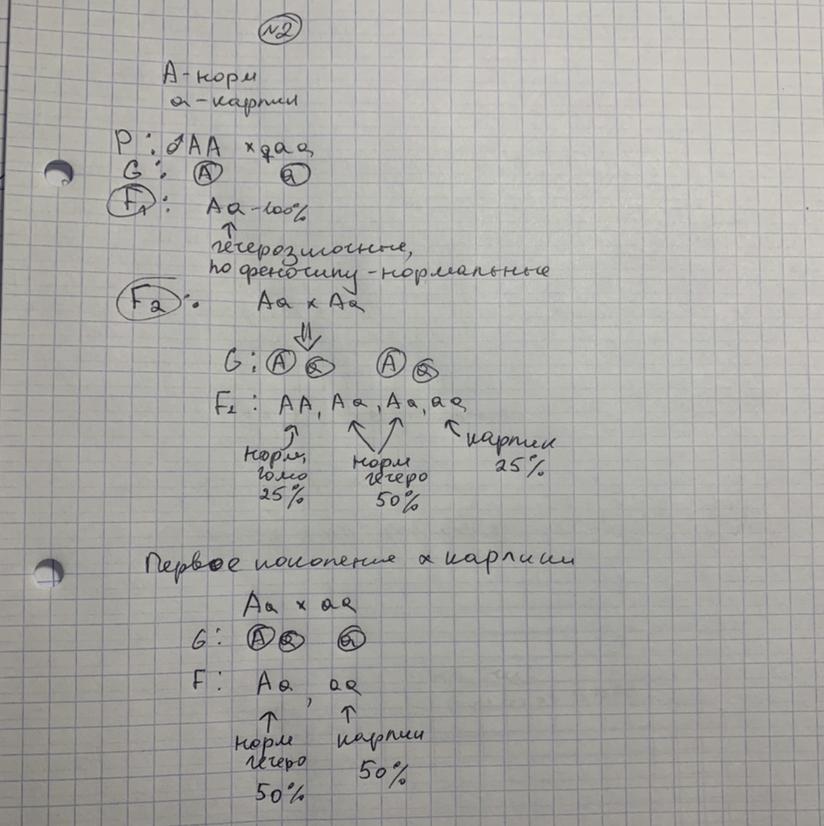 №2
А-норм
а-карлик
P: ♂AA × ♀aa
G: A a
F₁: Aa-100%
↑
гетерозиготные,
по фенотипу-нормальные
F₂: Aa × Aa
⇓
G: A a A a
F₂: AA, Aa, Aa, aa
норм, гомо 25%
норм гетеро 50%
карлик 25%
Первое поколение × карлики
Aa × aa
G: A a a
F: Aa, aa
↑ ↑
норм карлики
гетеро
50% 50%